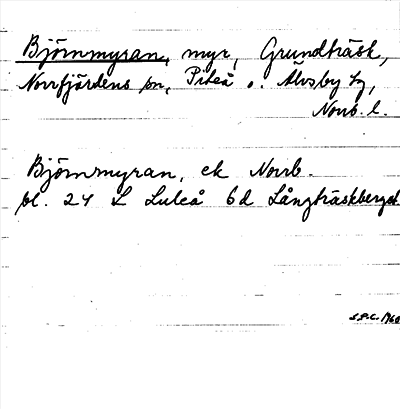 Björnmyran, myr, Grundträsk,
Norrfjärdens sn, Piteå o. Älvsby tg,
Norrb. l.
Björnmyran, ek Norrb.
bl. 24 L Luleå 6d Långträskberget
S.P.C. 1960